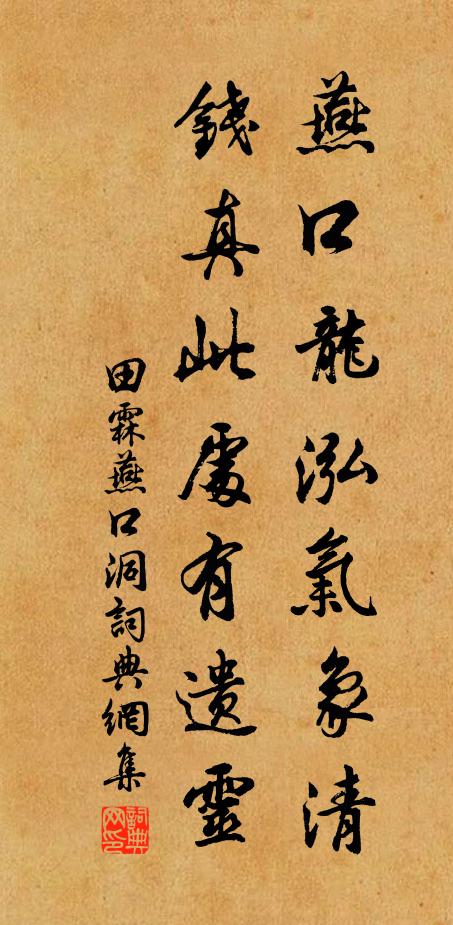 燕口龍泓氣象清
錢真此處有遺靈
田霖燕口洞詞典網集
詞典網印